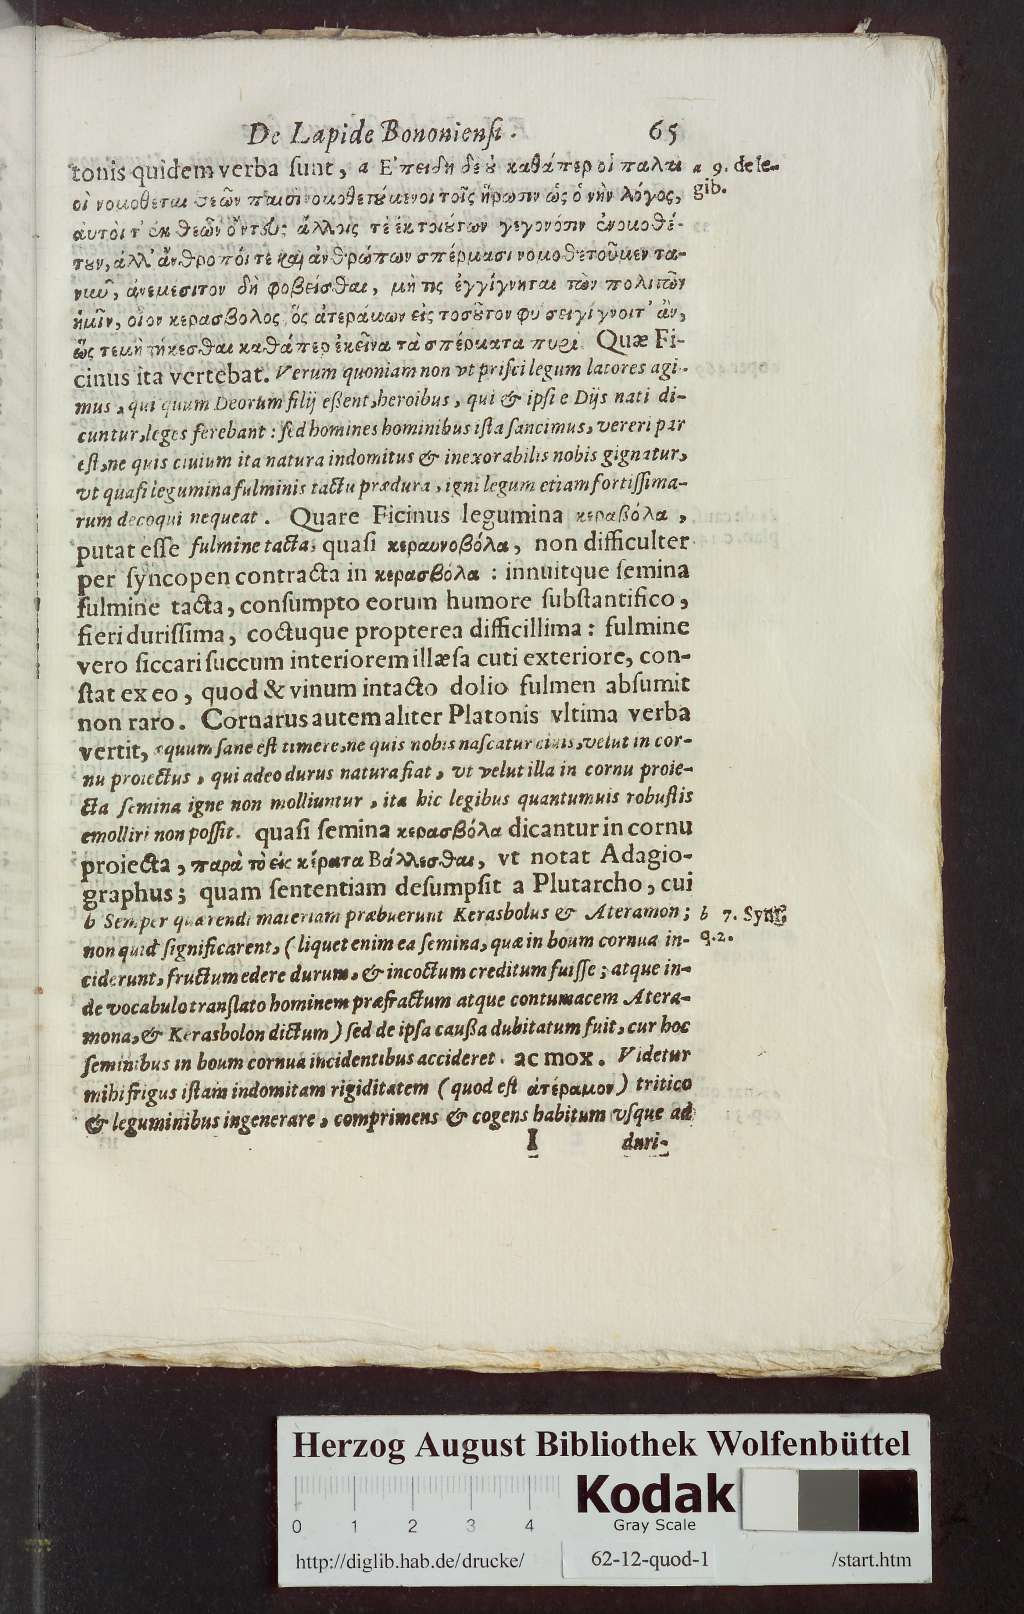 De Lapide Bononiensi. 65
tonis quidem verba sunt, a Ε᾽πειδὴ δε ȣ̓ καθάπερ οἱ παλαι a 9. de le-
οἱ νομοθεται θεῶν παισὶ νομοθετȣ́μενοι τοῖς ἥρωσιν ὡς ὁ νῦν λόγος, gib.
αυτοὶ τ᾽ ἐκ θεῶν ὄντες; ἄλλοις τὲ ἐκ τοιȣ́των γεγονόσιν ἐνομοθέ-
τουν, ἀλλ᾽ ἄνθροποί τε καὶ ἀνθρώπων σπέρμασι νομοθετοῦμεν τα-
νιῦ, ἀνεμεσιτον δὴ φοβεῖσθαι, μή τις ἐγγίγνηται τῶν πολιτῶν
ἡμῖν, οἷον κερασβολος, ὃς ἀτεραμων εἰς τοσοῦτον φύσει γίγνοιτ᾽ ἂν,
ὥς τε μὴ τήκεσθαι καθάπερ ἐκεῖνα τὰ σπέρματα πυρί. Quæ Fi-
cinus ita vertebat. Verum quoniam non vt prisci legum latores agi-
mus, qui quum Deorum filij eßent, heroibus, qui & ipsi e Dijs nati di-
cuntur, leges ferebant: sed homines hominibus ista sancimus, vereri par
est, ne quis ciuium ita natura indomitus & inexorabilis nobis gignatur,
vt quasi legumina fulminis tactu prædura, igni legum etiam fortissima-
rum decoqui nequeat. Quare Ficinus legumina κεραβόλα,
putat esse fulmine tacta, quasi κεραυνοβόλα, non difficulter
per syncopen contracta in κερασβόλα: innuitque semina
fulmine tacta, consumpto eorum humore substantifico,
fieri durissima, coctuque propterea difficillima: fulmine
vero siccari succum interiorem illæsa cuti exteriore, con-
stat ex eo, quod & vinum intacto dolio fulmen absumit
non raro. Cornarus autem aliter Platonis vltima verba
vertit, æquum sane est timere, ne quis nobis nascatur ciuis, velut in cor-
nu proiectus, qui adeo durus natura fiat, vt velut illa in cornu proie-
cta semina igne non molliuntur, ita hic legibus quantumuis robustis
emolliri non possit. quasi semina κερασβόλα dicantur in cornu
proiecta, παρὰ τὸ εἰς κέρατα Βάλλεσθαι, vt notat Adagio-
graphus; quam sententiam desumpsit a Plutarcho, cui
b Semper quærendi materiam præbuerunt Kerasbolus & Ateramon; b 7. Symp.
non quid significarent, (liquet enim ea semina, quæ in boum cornua in- q. 2.
ciderunt, fructum edere durum, & incoctum creditum fuisse; atque in-
de vocabulo translato hominem præfractum atque contumacem Atera-
mona, & Kerasbolon dictum) sed de ipsa caußa dubitatum fuit, cur hoc
seminibus in boum cornua incidentibus accideret. ac mox. Videtur
mihi frigus istam indomitam rigiditatem (quod est ἀτέραμον) tritico
& leguminibus ingenerare, comprimens & cogens habitum vsque ad
I duri-
Herzog August Bibliothek Wolfenbüttel
Kodak
Gray Scale
0 1 2 3 4
http://diglib.hab.de/drucke/ 62-12-quod-1 /start.htm